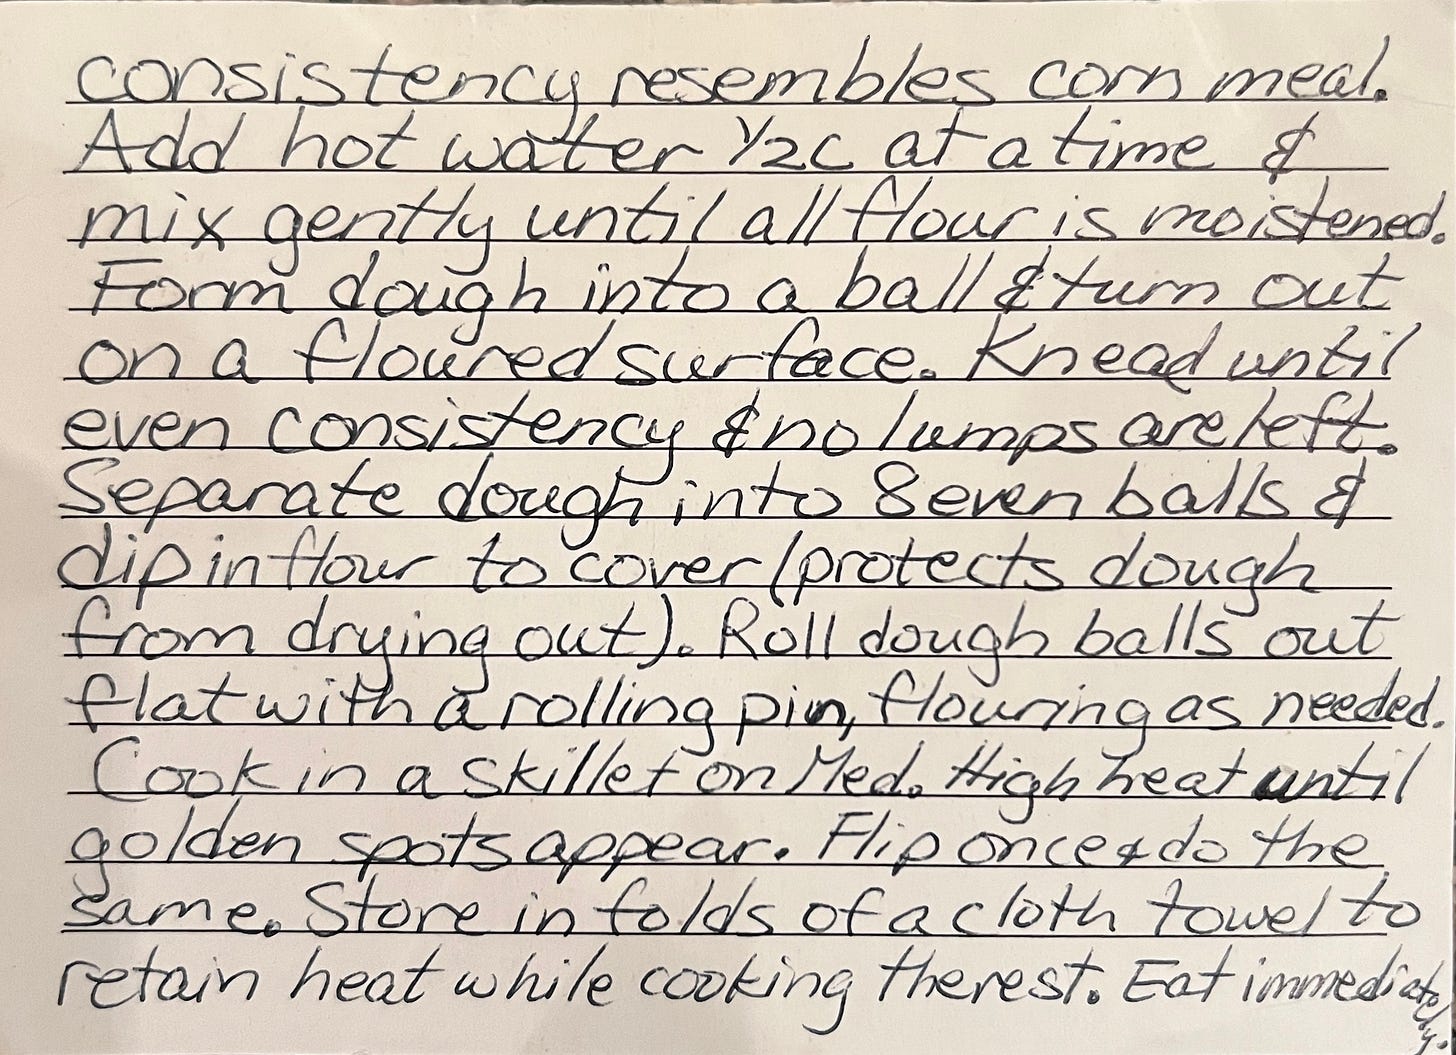 consistency resembles corn meal.
Add hot water 1/2c at a time &
mix gently until all flour is moistened.
Form dough into a ball & turn out
on a floured surface. Knead until
even consistency & no lumps are left.
Separate dough into 8 even balls &
dip in flour to cover (protects dough
from drying out). Roll dough balls out
flat with a rolling pin, flouring as needed.
Cook in a skillet on Med. High heat until
golden spots appear. Flip once & do the
same. Store in folds of a cloth towel to
retain heat while cooking the rest. Eat immediately.